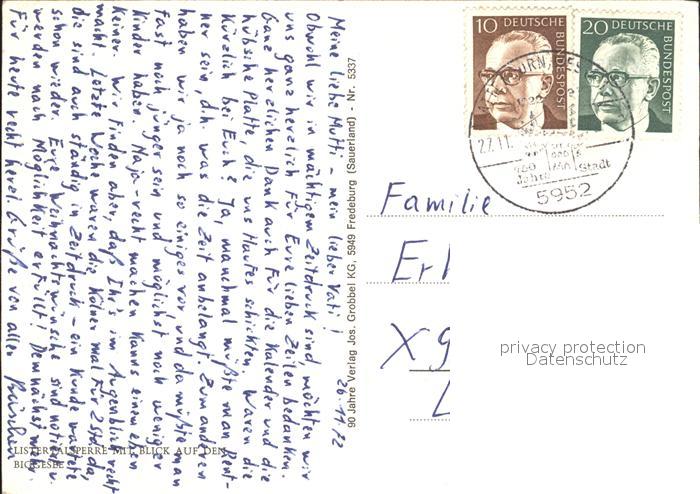 26.11.72
Meine liebe Mutti - mein lieber Vati!
Obwohl wir in mächtigem Zeitdruck sind, möchten wir
uns ganz herzlich für Eure lieben Zeilen bedanken.
Ganz herzlichen Dank auch für die Kalender und die
hübsche Platte, die uns Hautes schickten. Waren die
kürzlich bei Euch? Ja, manchmal müßte man Rent-
ner sein, d.h. was die Zeit anbelangt. Zum anderen
haben wir ja noch so einiges vor, und da müßte man
fast noch jünger sein und möglichst noch weniger
Kinder haben. Naja - recht machen kanns einem eben
keiner. Wir finden aber, daß Ihr's im Augenblick recht
macht. Letzte Woche waren die Kölner mal für 2 Std. da,
die sind auch ständig in Zeitdruck - ein Kunde wartete
schon wieder. Eure Weihnachtswünsche sind notiert u.
werden nach Möglichkeit erfüllt! Demnächst mehr.
Für heute recht herzl. Grüße von allen
LISTERTALSPERRE MIT BLICK AUF DEN
BIGGESEE
90 Jahre Verlag Jos. Grobbel KG, 5949 Fredeburg (Sauerland) - Nr. 5337
10 DEUTSCHE
BUNDESPOST
20 DEUTSCHE
BUNDESPOST
27.11.
Jahre Stadt
5952
Familie
Er
X9
L
privacy protection
Datenschutz